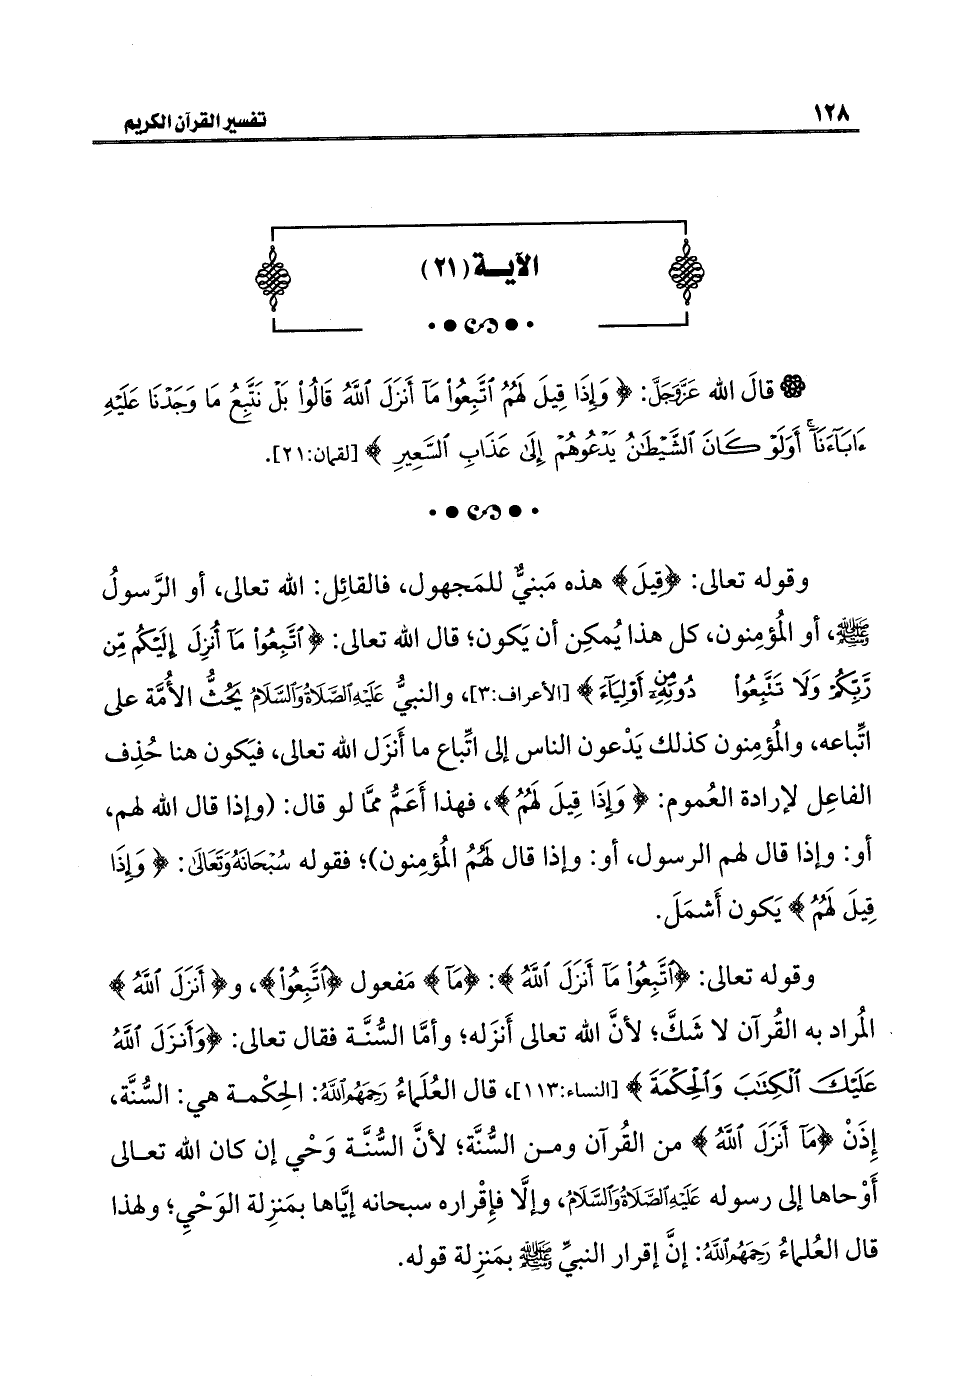 ١٢٨ تفسير القرآن الكريم
الآيـــة (٢١)
قالَ الله عَزَّوَجَلَّ: ﴿وَإِذَا قِيلَ لَهُمُ ٱتَّبِعُواْ مَآ أَنزَلَ ٱللَّهُ قَالُواْ بَلْ نَتَّبِعُ مَا وَجَدْنَا عَلَيْهِ
ءَابَآءَنَآ ۚ أَوَلَوْ كَانَ ٱلشَّيْطَٰنُ يَدْعُوهُمْ إِلَىٰ عَذَابِ ٱلسَّعِيرِ﴾ [لقمان:٢١].
وقوله تعالى: ﴿قِيلَ﴾ هذه مَبنيٌّ للمَجهول، فالقائِل: الله تعالى، أو الرَّسولُ
ﷺ، أو المُؤمِنون، كل هذا يُمكِن أن يَكون؛ قال الله تعالى: ﴿ٱتَّبِعُواْ مَآ أُنزِلَ إِلَيْكُم مِّن
رَّبِّكُمْ وَلَا تَتَّبِعُواْ مِن دُونِهِۦٓ أَوْلِيَآءَ﴾ [الأعراف:٣]، والنبيُّ عَلَيْهِ ٱلصَّلَاةُ وَٱلسَّلَامُ يَحُثُّ الأُمَّة على
اتِّباعه، والمُؤمِنون كذلك يَدْعون الناس إلى اتِّباع ما أَنزَل الله تعالى، فيَكون هنا حُذِف
الفاعِل لإرادة العُموم: ﴿وَإِذَا قِيلَ لَهُمُ﴾، فهذا أَعَمُّ ممَّا لو قال: (وإذا قال الله لهم،
أو: وإذا قال لهم الرسول، أو: وإذا قال لَهُمُ المُؤمِنون)؛ فقوله سُبْحَانَهُ وَتَعَالَىٰ: ﴿وَإِذَا
قِيلَ لَهُمُ﴾ يَكون أَشمَلَ.
وقوله تعالى: ﴿ٱتَّبِعُواْ مَآ أَنزَلَ ٱللَّهُ﴾: ﴿مَآ﴾ مَفعول ﴿ٱتَّبِعُواْ﴾، و﴿أَنزَلَ ٱللَّهُ﴾
المُراد به القُرآن لا شَكَّ؛ لأنَّ الله تعالى أَنزَله؛ وأمَّا السُّنَّة فقال تعالى: ﴿وَأَنزَلَ ٱللَّهُ
عَلَيْكَ ٱلْكِتَٰبَ وَٱلْحِكْمَةَ﴾ [النساء:١١٣]، قال العُلَماءُ رَحِمَهُمُ ٱللَّهُ: الحِكْمة هي: السُّنَّة،
إِذَنْ ﴿مَآ أَنزَلَ ٱللَّهُ﴾ من القُرآن ومن السُّنَّة؛ لأنَّ السُّنَّة وَحْي إن كان الله تعالى
أَوْحاها إلى رسوله عَلَيْهِ ٱلصَّلَاةُ وَٱلسَّلَامُ، وإلَّا فإِقْراره سبحانه إيَّاها بمَنزِلة الوَحْيِ؛ ولهذا
قال العُلماءُ رَحِمَهُمُ ٱللَّهُ: إنَّ إقرار النبيِّ ﷺ بمَنزِلة قوله.